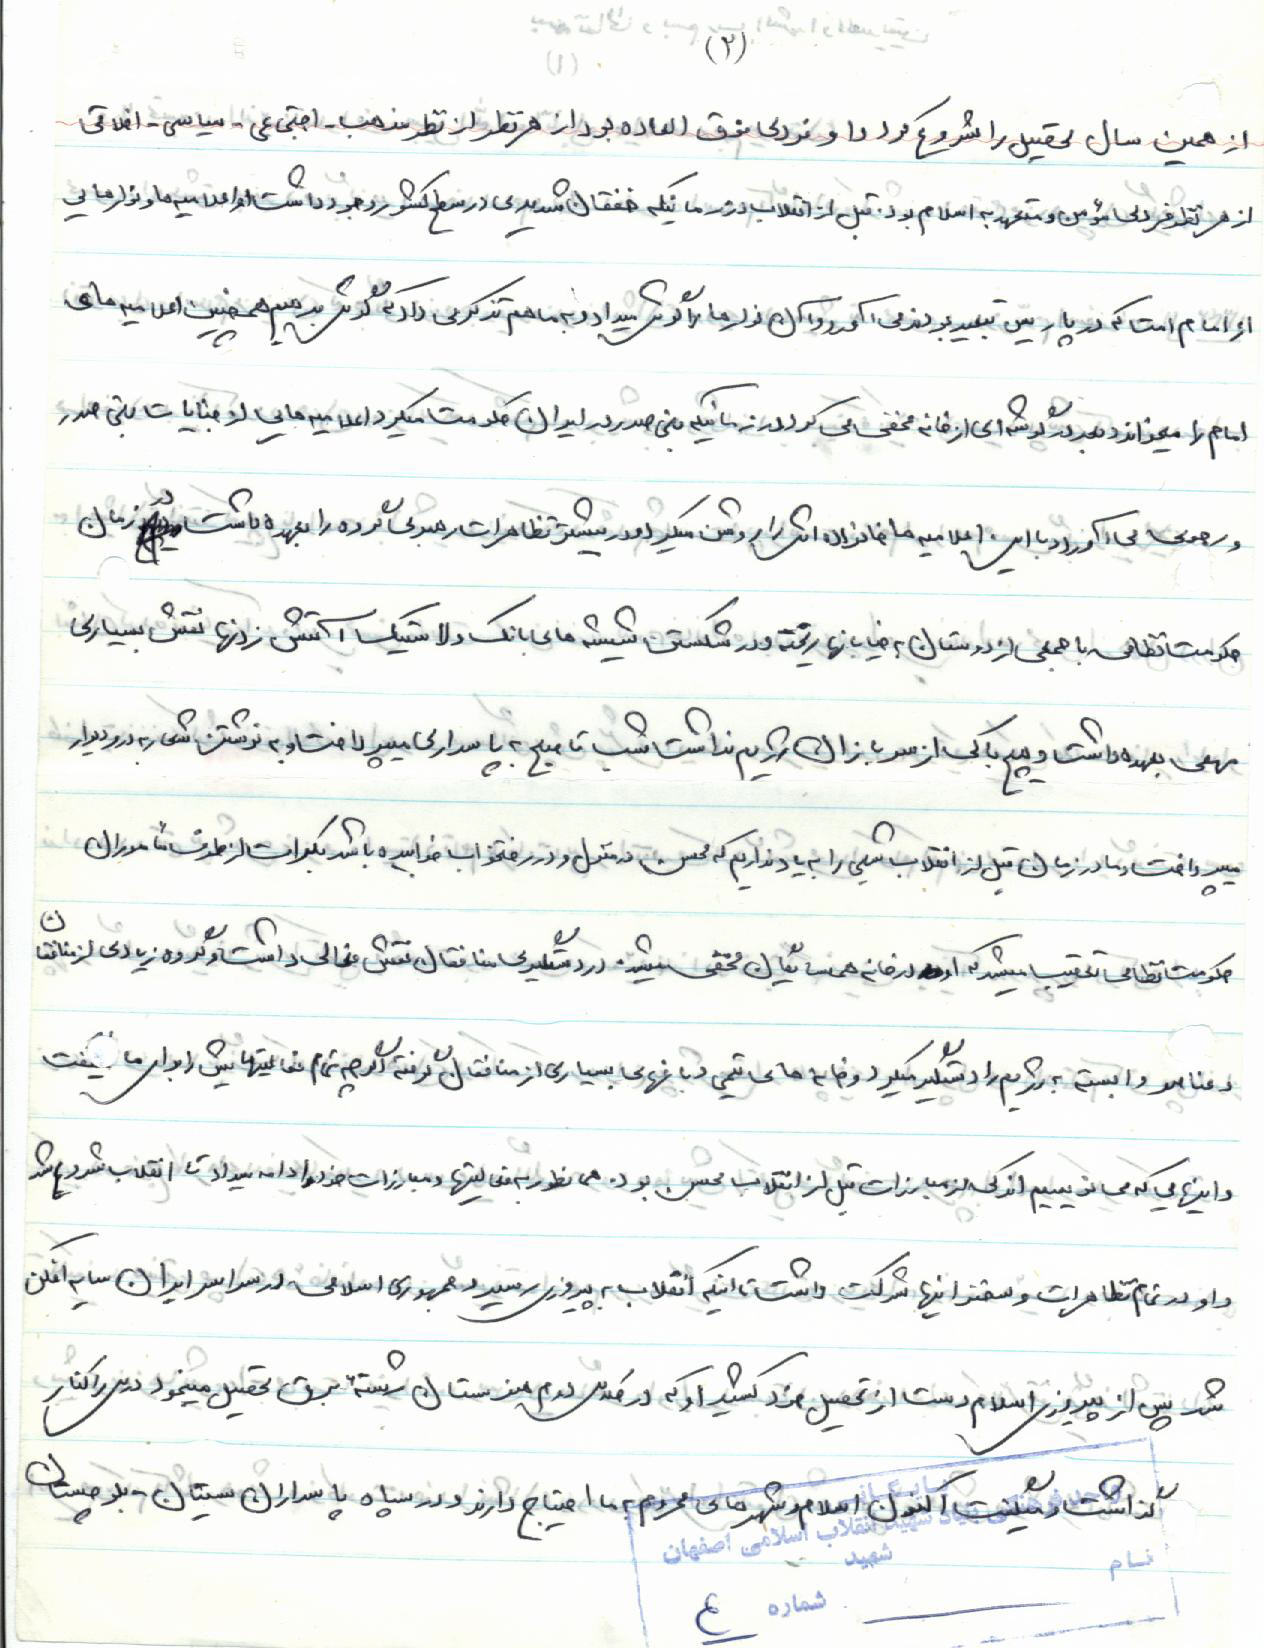 (۲)
از همین سال تحصیل را شروع کرد او فردی فوق العاده بود از هر نظر از نظر مذهب - اجتماعی - سیاسی - اخلاقی
از هر نظر فردی مؤمن و متعهد به اسلام بود. قبل از انقلاب در زمانیکه خفقان شدیدی در سطح کشور وجود داشت او اعلامیه ها و نوارهایی
از امام امت که در پاریس تبعید بودند می آورد و آن نوارها را گوش میداد و به ما هم تذکر می داد که گوش بدهیم همچنین اعلامیه های
امام را میخواند و بعد در گوشه ای از خانه مخفی می کرد در زمانیکه بنی صدر در ایران حکومت میکرد اعلامیه هایی از جنایات بنی صدر
و رجوی می آورد و با این اعلامیه ها خانواده اش را روشن میکرد او در بیشتر تظاهرات رهبری گروه را بعهده داشت در زمان
حکومت نظامی با جمعی از دوستان به خیابانها ریخته و در شکستن شیشه های بانک و لاستیک آتش زدنها نقش بسیاری
مهمی بعهده داشت و هیچ باکی از سربازان رژیم نداشت شب تا صبح به پاسداری میپرداخت و به نوشتن شعار به در و دیوار
میپرداخت و ما در زمان قبل از انقلاب شبی را به یاد نداریم که محسن در منزل و در رختخواب خوابیده باشد یکمرتبه از طرف مأموران
حکومت نظامی تعقیب میشد که او در خانه همسایگان مخفی میشد. در دستگیری منافقان نقش فعالی داشت و گروه زیادی از منافقان
و عناصر وابسته به رژیم را دستگیر میکرد و خانه های تیمی و باغهای بسیاری از منافقان گرفته اگر چه تمام فعالیتهایش را برای ما نمیگفت
و اینهایی که می نویسیم اندکی از مبارزات قبل از انقلاب محسن بود. همانطور به فعالیتها و مبارزات خود ادامه میداد تا انقلاب شروع شد
و او در تمام تظاهرات و سخنرانیها شرکت داشت تا اینکه انقلاب به پیروزی رسید و جمهوری اسلامی در سراسر ایران سایه افکن
شد پس از پیروزی اسلام دست از تحصیل خود کشید او که در کلاس دوم هنرستان رشته برق تحصیل مینمود درس را کنار
گذاشت و میگفت اکنون اسلام و شهرهای محروم به ما احتیاج دارند و در سپاه پاسداران سیستان - بلوچستان
بنیاد شهید انقلاب اسلامی اصفهان
نام شهید
شماره ۴